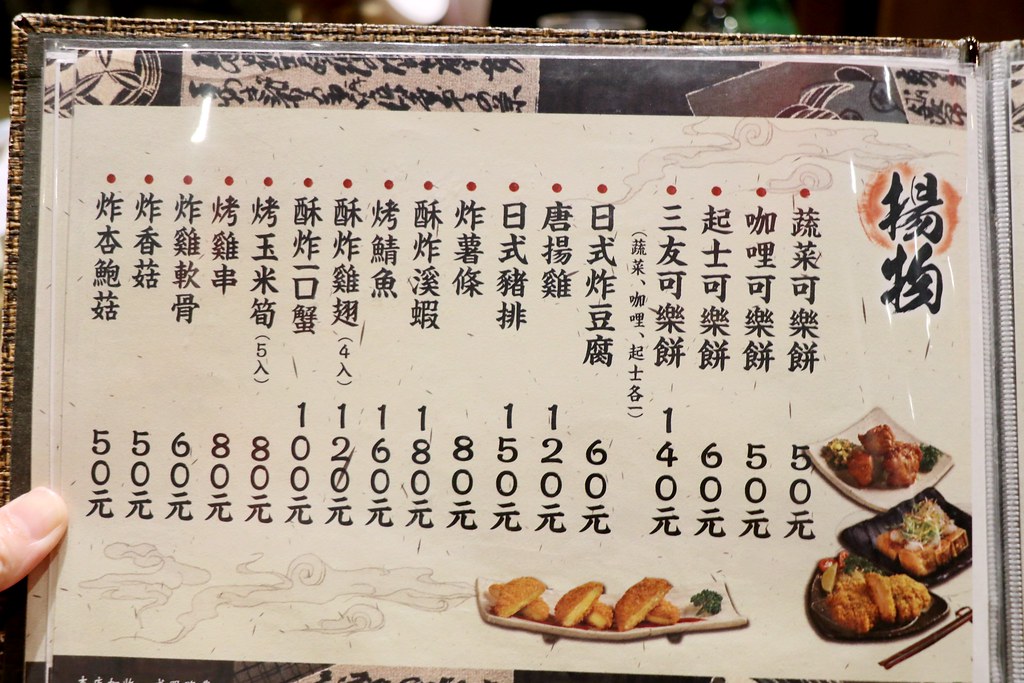 揚物
蔬菜可樂餅 50元
咖哩可樂餅 50元
起士可樂餅 60元
三友可樂餅 140元
(蔬菜、咖哩、起士各一)
日式炸豆腐 60元
唐揚雞 120元
日式豬排 150元
炸薯條 80元
酥炸溪蝦 180元
烤鯖魚 160元
酥炸雞翅(4入) 120元
酥炸一口蟹 100元
烤玉米筍(5入) 80元
烤雞串 80元
炸雞軟骨 60元
炸香菇 50元
炸杏鮑菇 50元